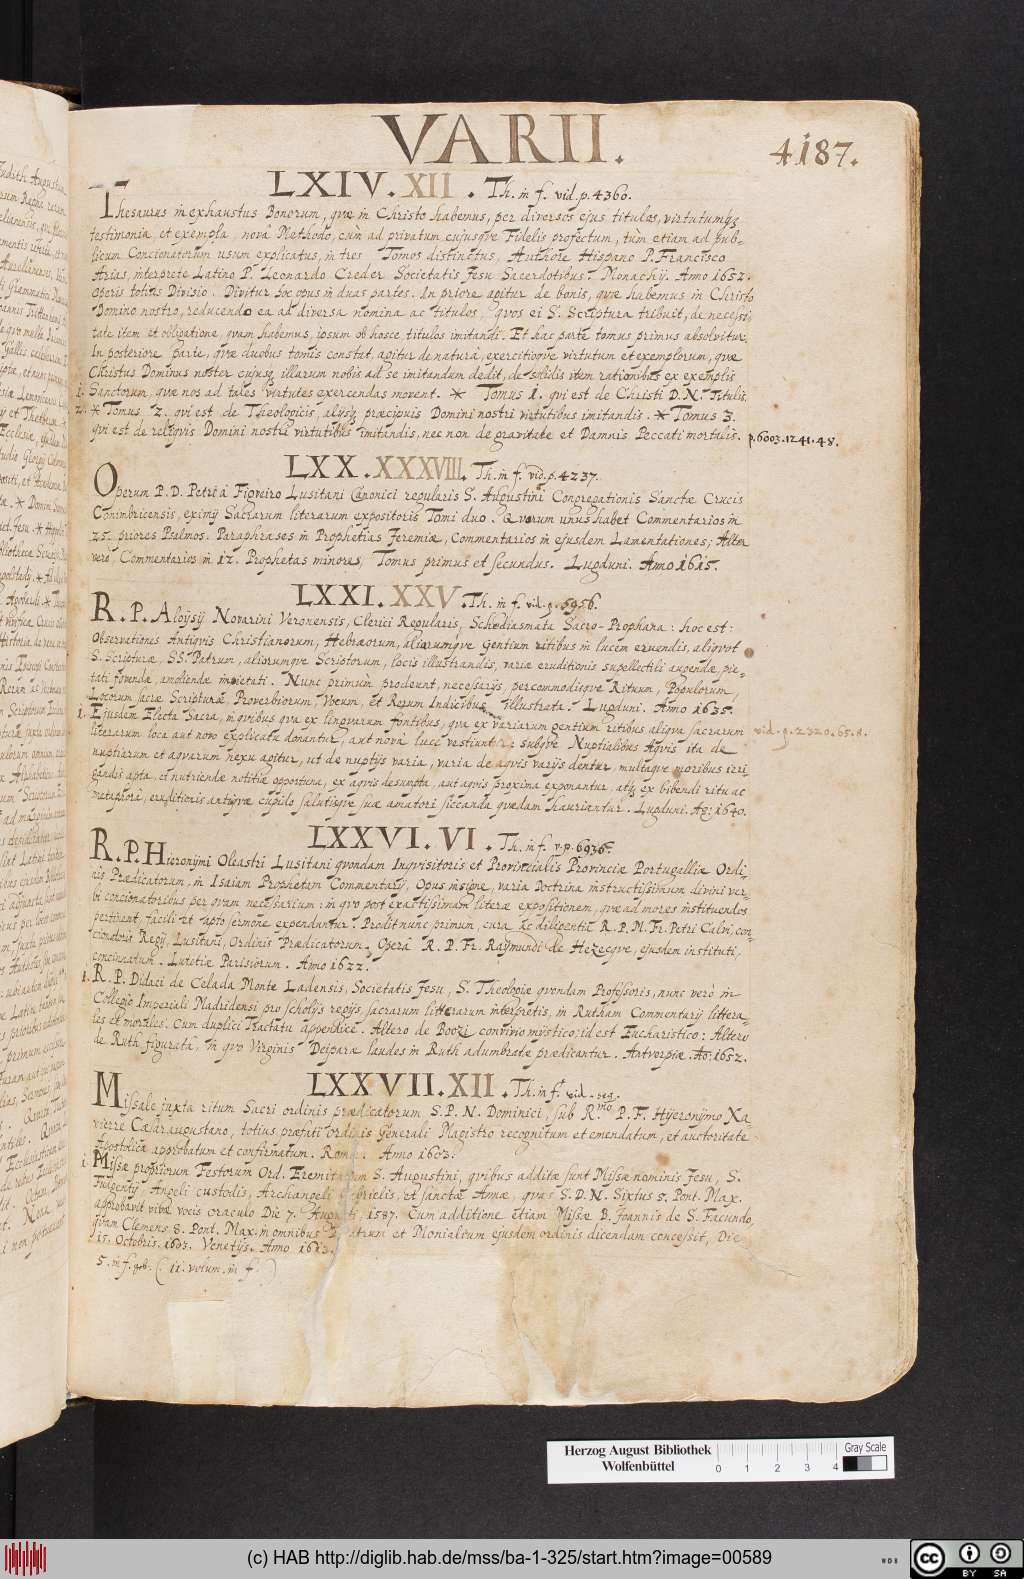 VARII.
4187.
LXIV. XII. Th. in f. vid. p. 4360.
Thesaurus inexhaustus Bonorum, quæ in Christo habemus, per diversos ejus titulos, virtutumq;
testimonia, et exempla, novâ Methodo, cùm ad privatum cujusque Fidelis profectum, tùm etiam ad pub-
licum Concionatorum usum explicatus, in tres Tomos distinctus, Authore Hispano P. Francisco
Arias, interprete Latino P. Leonardo Creder Societatis Jesu Sacerdotibus. Monachij. Anno 1652.
Operis totius Divisio. Dividitur hoc opus in duas partes. In priore agitur de bonis, quæ habemus in Christo
Domino nostro, reducendo ea ad diversa nomina ac titulos, quos ei S. Scriptura tribuit, de necessi-
tate item et obligatione, quam habemus, ipsum ob hosce titulos imitandi. Et hac parte tomus primus absolvitur.
In posteriore parte, quæ duobus tomis constat, agitur de natura, exercitioque virtutum et exemplorum, quæ
Christus Dominus noster cujusq; illarum nobis ad se imitandum dedit, de solidis item rationibus ex exemplis
1. Sanctorum, quæ nos ad tales virtutes exercendas movent. * Tomus 1. qui est de Christi D. N. Titulis.
2. * Tomus 2. qui est de Theologicis, alijsq; præcipuis Domini nostri virtutibus imitandis. * Tomus 3.
qui est de reliquis Domini nostri virtutibus imitandis, nec non de gravitate et Damnis Peccati mortalis. p. 6003. 1241. 48.
LXX. XXXVIII. Th. in f. vid. p. 4237.
Operum P. D. Petri â Figveiro Lusitani Canonici regularis S. Augustini Congregationis Sanctæ Crucis
Conimbricensis, eximij Sacrarum literarum expositoris Tomi duo. Quorum unus habet Commentarios in
25. priores Psalmos. Paraphrases in Prophetias Jeremiæ, Commentarios in ejusdem Lamentationes; Alter
verò Commentarios in 12. Prophetas minores, Tomus primus et secundus. Lugduni. Anno 1615.
LXXI. XXV. Th. in f. vid. p. 5956.
R. P. Aloijsij Novarini Veronensis, Clerici Regularis, Schediasmata Sacro-Prophana: hoc est:
Observationes Antiquis Christianorum, Hebræorum, aliorumque Gentium ritibus in lucem eruendis, aliquot
S. Scripturæ, SS. Patrum, aliorumque Scriptorum, locis illustrandis, variæ eruditionis supellectili augendæ, pie-
tati fovendæ, amoliendæ impietati. Nunc primùm prodeunt, necessarijs, percommodisque Rituum, Populorum,
Locorum sacræ Scripturæ, Proverbiorum, Vocum, et Rerum Indicibus illustrata. Lugduni. Anno 1635.
1. Ejusdem Electa Sacra, in quibus qua ex linguarum fontibus, qua ex variarum gentium ritibus aliqua sacrarum vid. p. 2320. 65. 8.
literarum loca aut novo explicatu donantur, aut nova luce vestiuntur: subque Nuptialibus Aquis ita de
nuptiarum et aquarum nexu agitur, ut de nuptijs varia, varia de aquis varijs dentur, multaque moribus irri-
gandis apta, et nutriendæ notitiæ opportuna, ex aquis desumpta, aut aquis proxima exponantur, atq; ex bibendi ritu ac
metaphorâ, eruditionis antiquæ cupido salutisque suæ amatori siccanda quædam hauriantur. Lugduni. Aõ: 1640.
LXXVI. VI. Th. in f. v. p. 6936.
R. P. Hieronymi Oleastri Lusitani quondam Inquisitoris et Provincialis Provinciæ Portugalliæ Ordi-
nis Prædicatorum, in Isaiam Prophetam Commentarij, Opus insigne, varia Doctrina instructissimum divini ver-
bi concionatoribus per quam necessarium: in quo post exactissimam literæ expositionem, quæ ad mores instituendos
pertinent, facili et apto sermone expendantur. Prodit nunc primum, cura ac diligentiâ R. P. M. Fr. Petri Calvi con-
cionatoris Regij, Lusitani, Ordinis Prædicatorum. Operâ R. P. Fr. Raijmundi de Hezecque, ejusdem instituti,
concinnatum. Lutetiæ Parisiorum. Anno 1622.
1. R. P. Didaci de Celada Monte Ladensis, Societatis Jesu, S. Theologiæ quondam Professoris, nunc verò in
Collegio Imperiali Madridensi pro scholijs regijs, sacrarum litterarum interpretis, in Rutham Commentarij littera-
les et morales. Cum duplici Tractatu appendice. Altero de Boozi convivio mystico: id est Eucharistico: Altero
de Ruth figuratâ, in quo Virginis Deiparæ laudes in Ruth adumbratæ prædicantur. Antverpiæ. Aõ: 1652.
LXXVII. XII. Th. in f. vid. seq.
Missale juxta ritum Sacri ordinis prædicatorum S. P. N. Dominici, sub Rmo P. F. Hijeronijmo Xa
vierre Cæsaraugustano, totius præfati ordinis Generali Magistro recognitum et emendatum, et auctoritate
Apostolica approbatum et confirmatum. Romæ. Anno 1603.
1. Missæ propriorum Festorum Ord. Eremitarum S. Augustini, quibus additæ sunt Missæ nominis Jesu, S.
Fulgentij, Angeli custodis, Archangeli Gabrielis, et sanctæ Annæ, quas S. D. N. Sixtus 5. Pont. Max.
approbavit vivæ vocis oraculo Die 7. Augusti, 1587. Cum additione etiam Missæ B. Joannis de S. Facundo,
quam Clemens 8. Pont. Max. in omnibus Fratrum et Monialium ejusdem ordinis dicendam concessit, Die
15. Octobris. 1603. Venetijs. Anno 1613.
5. in f. geb. (11. volum. in f.)
Herzog August Bibliothek
Wolfenbüttel
0 1 2 3 4
Gray Scale
(c) HAB http://diglib.hab.de/mss/ba-1-325/start.htm?image=00589
WDB
cc
BY SA